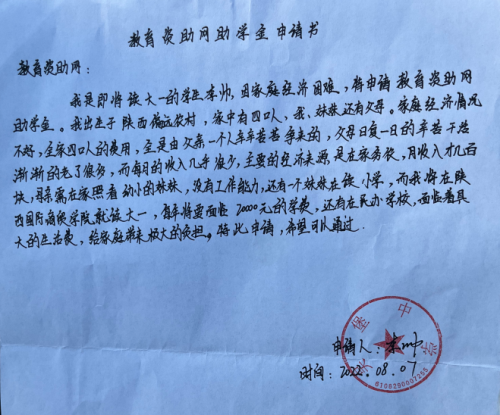 教育资助网助学金申请书
教育资助网：
我是即将读大一的学生李帅，因家庭经济困难，特申请教育资助网
助学金。我出生于陕西偏远农村，家中有四口人，我、妹妹还有父母。家庭经济情况
不好，全家四口人的费用，全是由父亲一个人辛辛苦苦争来的，父母日复一日的辛苦干活
渐渐的老了很多，而每月的收入几乎很少，主要的经济来源是在家务农，月收入才几百
块，母亲需在家照看幼小的妹妹，没有工作能力，还有一个妹妹在读小学，而我将在陕
西国际商贸学院就读大一，每年将要面临20000元的学费，还有在民办学校，面临着具
大的生活费，给家庭带来极大的负担。特此申请，希望可以通过.
申请人：李帅
时间：2022.08.07
堡中
6100290007255